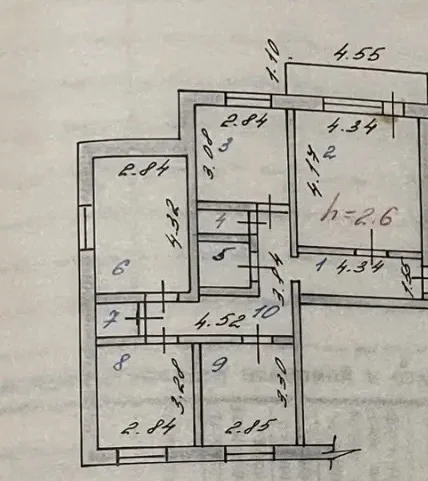 4.55
1.10
2.84
3
3.08
4.34
2
4.17
h=2.6
2.84
4.32
6
4
5
3.04
1
4.34
1.55
7
4.52
10
8
3.28
2.84
9
3.30
2.85